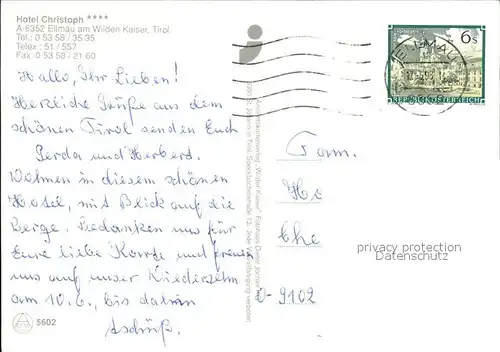 Hotel Christoph ****
A-6352 Ellmau am Wilden Kaiser, Tirol
Tel.: 0 53 58 / 35 35
Telex : 51 / 557
Fax 0 53 58 / 21 60
Hallo, Ihr Lieben!
Herzliche Grüße aus dem
schönen Tirol senden Euch
Gerda und Herbert.
Wohnen in diesem schönen
Hotel, mit Blick auf die
Berge. Bedanken uns für
Eure liebe Karte und freuen
uns auf unser Wiedersehn
am 10.6., bis dahin
tschüß.
5602
6s
ELLMAU
REPUBLIK ÖSTERREICH
Fam.
Ho
Che
D-9102
privacy protection
Datenschutz